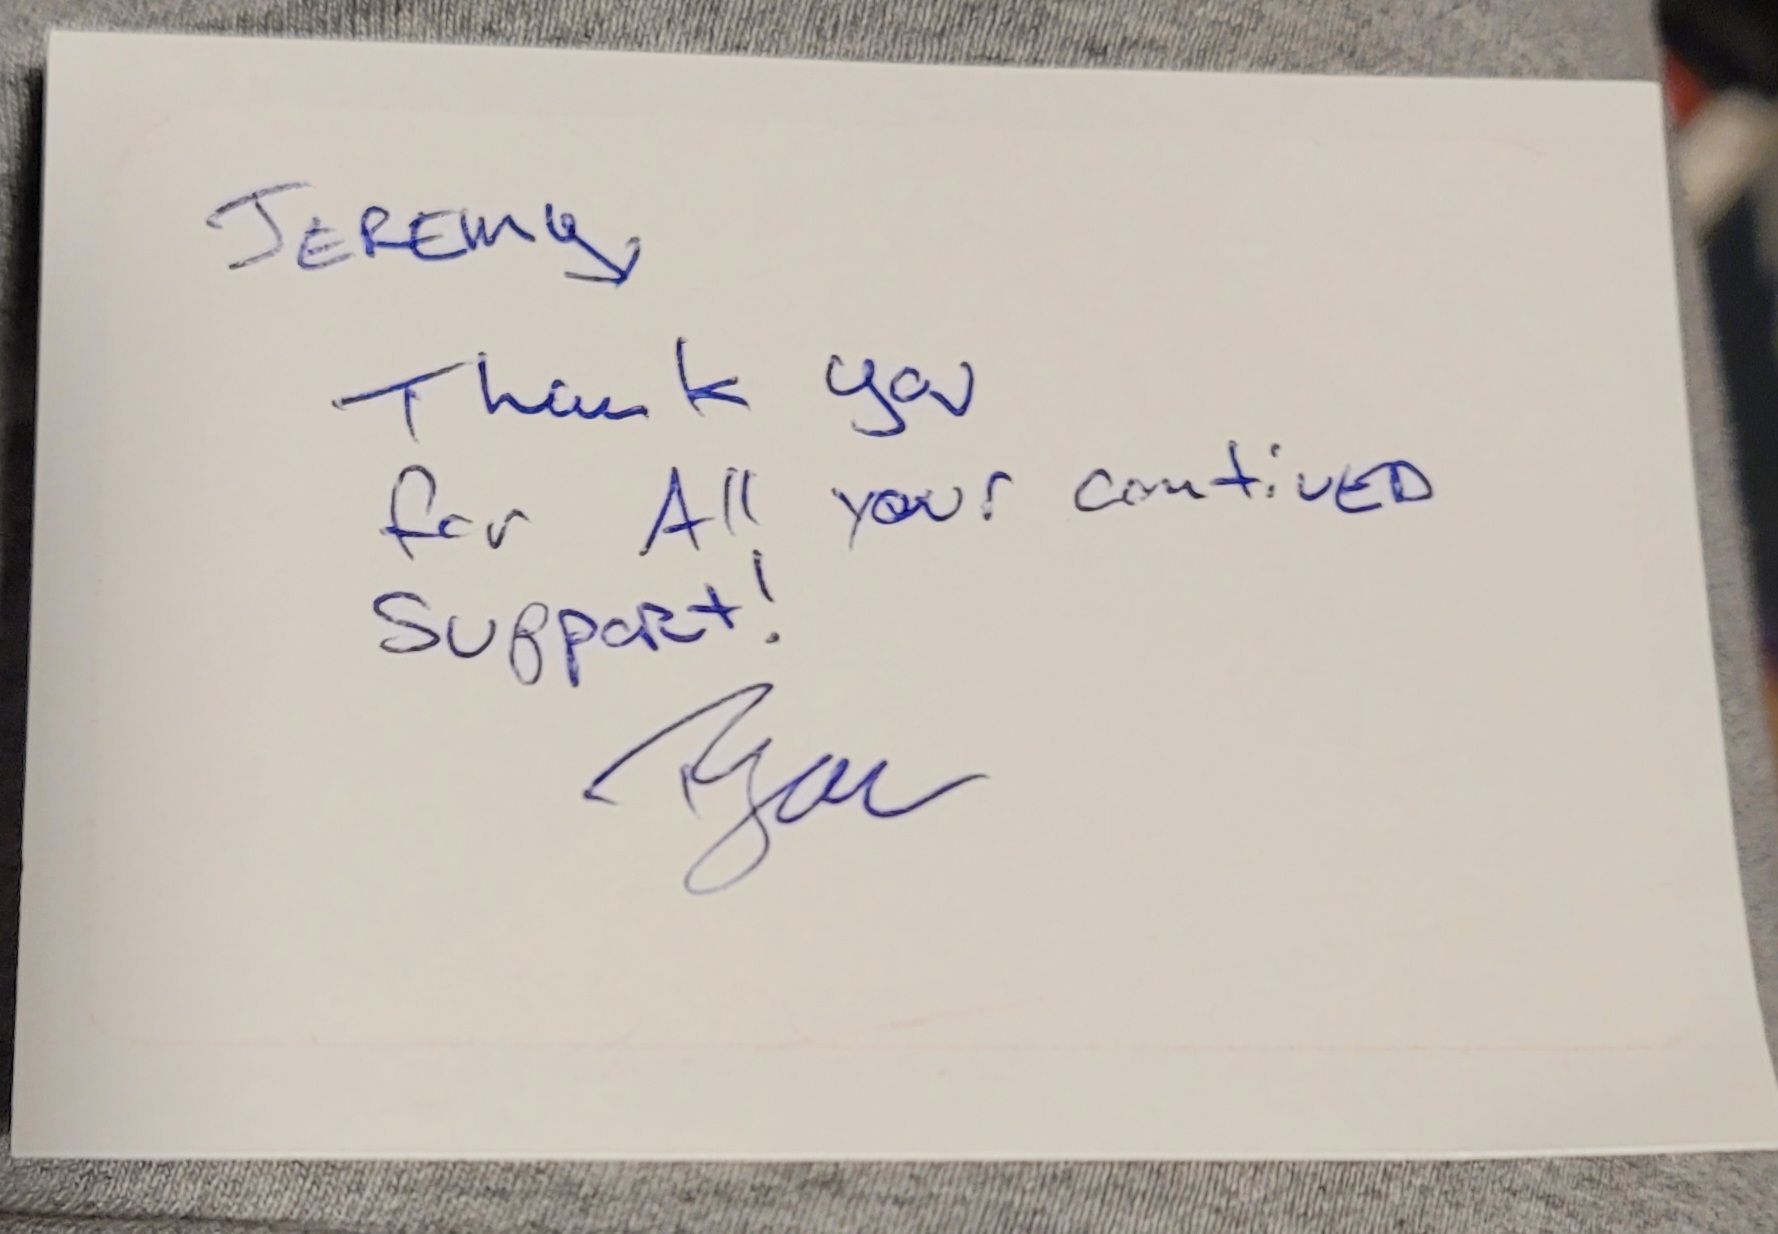 JEREMY,
Thank you
for All your contiuED
Support!
Ryan